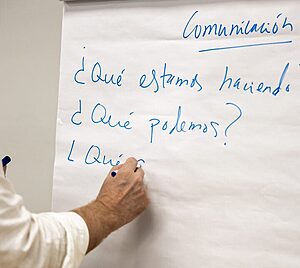 Comunicación
¿Qué estamos haciendo
¿Qué podemos?
¿Qué